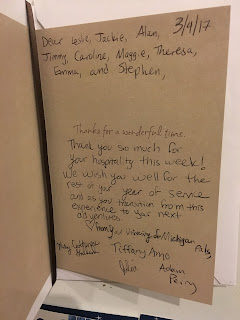 3/4/17
Dear Leslie, Jackie, Alan,
Jimmy, Caroline, Maggie, Theresa,
Emma, and Stephen,
Thanks for a wonderful time.
Thank you so much for
your hospitality this week!
We wish you well for the
rest of your year of service
and as you transition from this
experience to your next
adventures.
♡ from your University of Michigan pals,
Tiffany
Julia
Adam
Perry